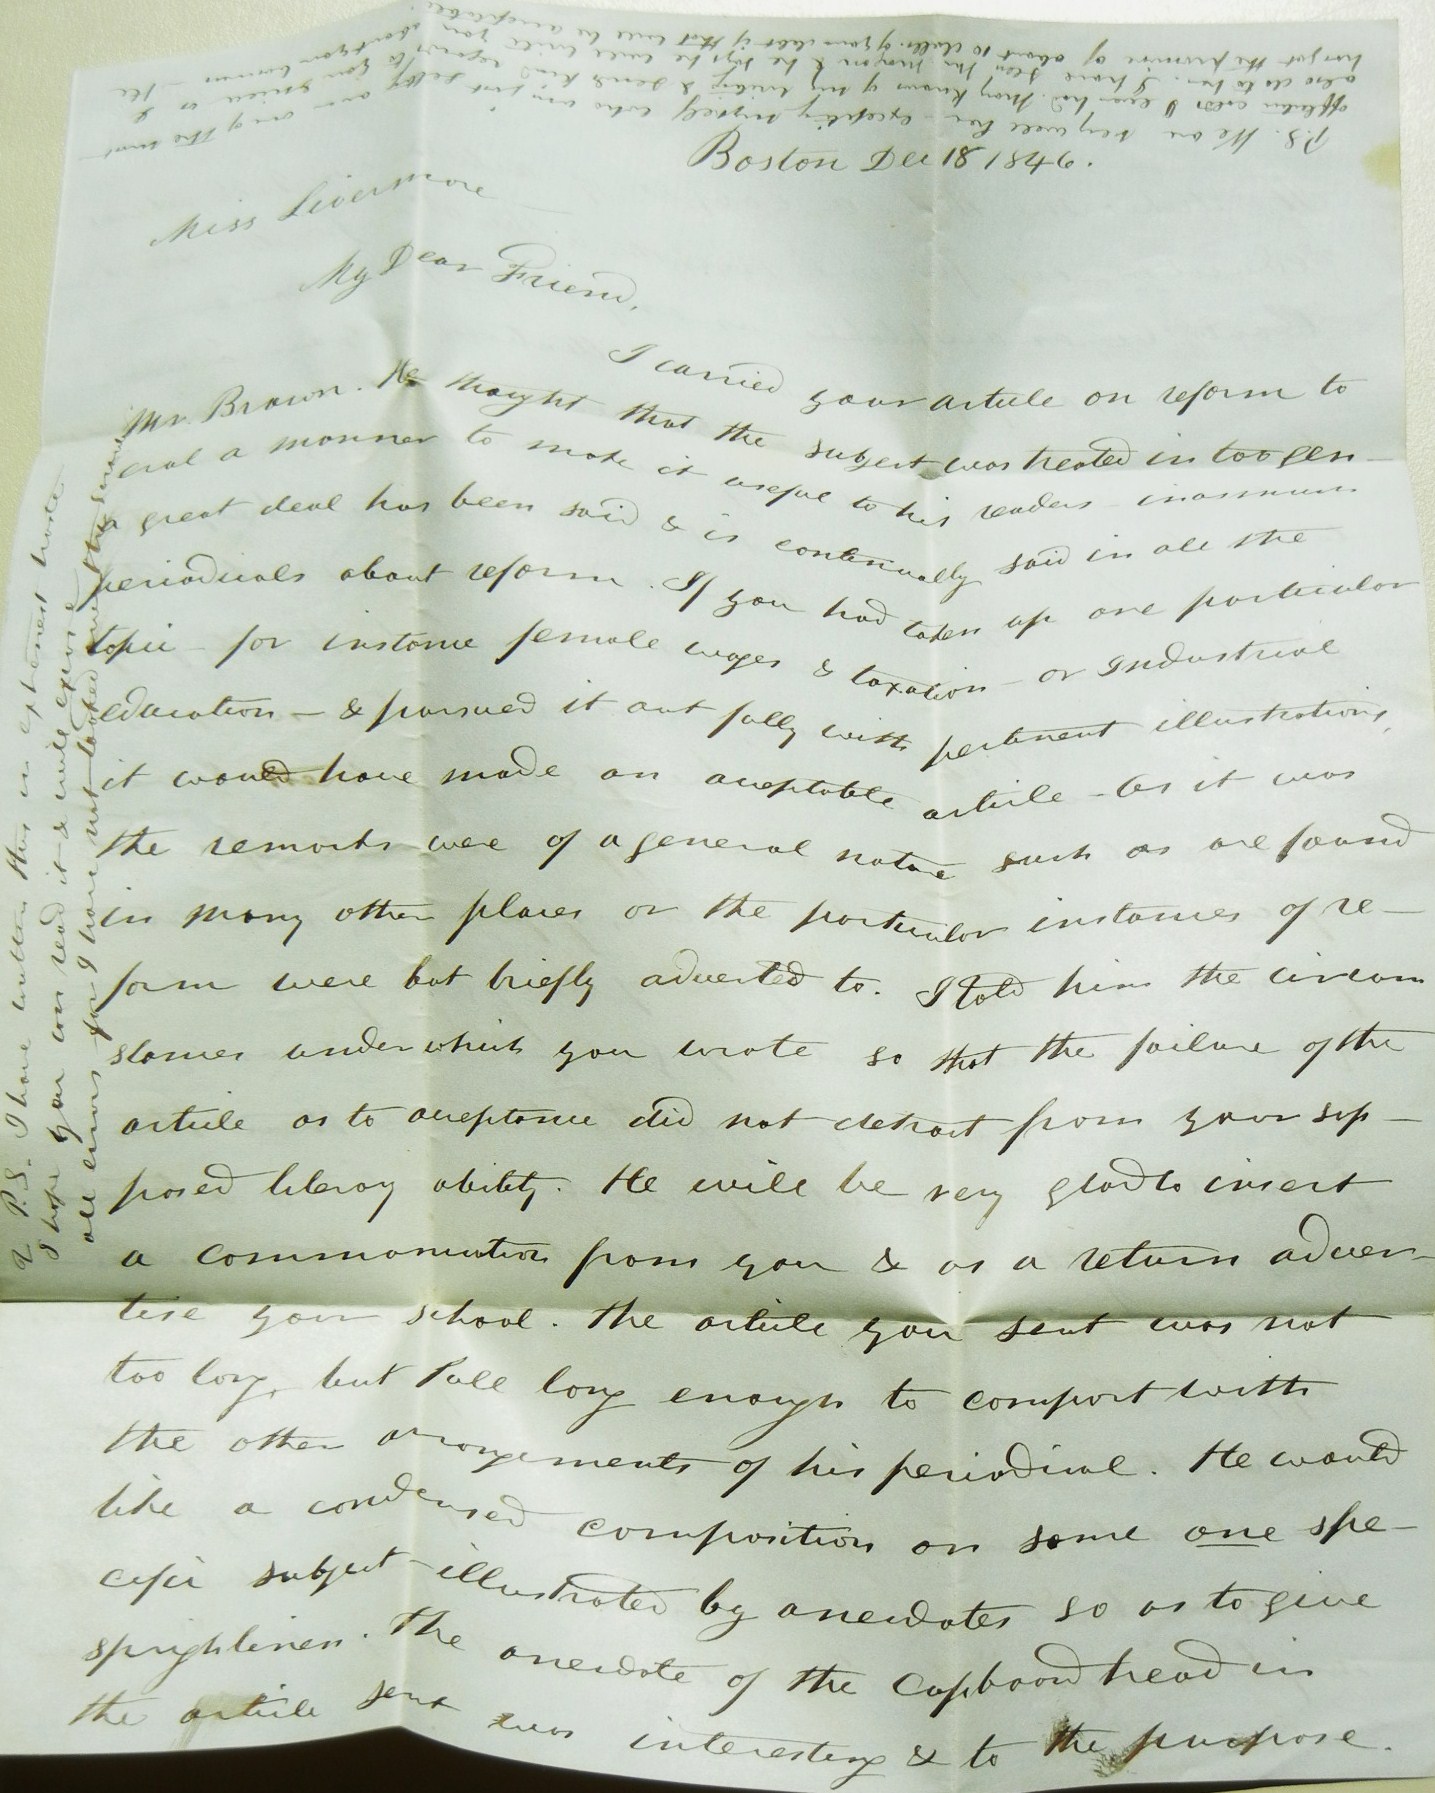 Boston Dec 18 1849.
Miss Livermore
My Dear Friend,
I carried your article on reform to
Mr. Brown. He thought that the subject was treated in too gen-
eral a manner to make it useful to his readers inasmuch
a great deal has been said & is continually said in all the
periodicals about reform. If you had taken up one particular
topic - for instance female wages & taxation - or Industrial
education - & pursued it out fully with pertinent illustrations,
it would have made an acceptable article - As it was
the remarks were of a general nature such as are found
in many other places or the particular instances of re-
form were but briefly adverted to. I told him the circum
stances under which you wrote so that the failure of the
article as to acceptance did not detract from your sup-
posed literary ability. He will be very glad to insert
a communication from you & as a return adver-
tise your school. The article you sent was not
too long, but full long enough to comport with
the other arrangements of his periodical. He would
like a condensed composition on some one spe-
cific subject illustrated by anecdotes so as to give
sprightliness. The anecdote of the Cupboard head in
the article sent was interesting & to the purpose.
P.S. We are very well here excepting myself who am just
I ever had. Mary knows of my writing & sends kind regards to you
also do her. I have seen Mr & he says he
has got the promise of about 10 dolls. of your debt if that will be acceptable.
2 P.S. I have written this in haste
I hope you can read it & will excuse
all errors for I have not looked